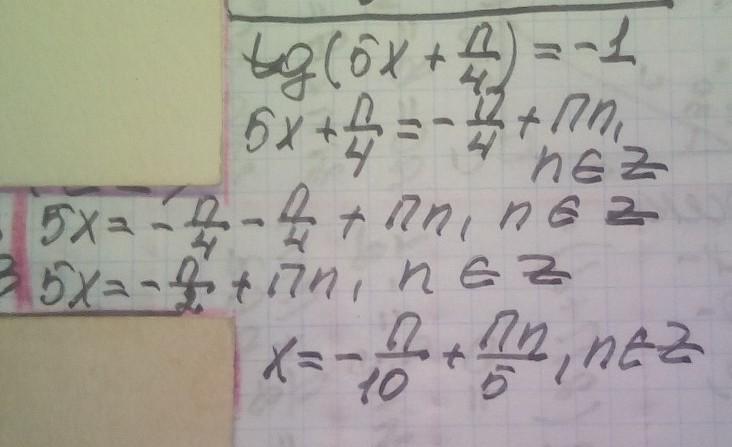 tg(5x + π/4) = -1
5x + π/4 = -π/4 + πn,
n ∈ Z
5x = -π/4 - π/4 + πn, n ∈ Z
5x = -π/2 + πn, n ∈ Z
x = -π/10 + πn/5, n ∈ Z